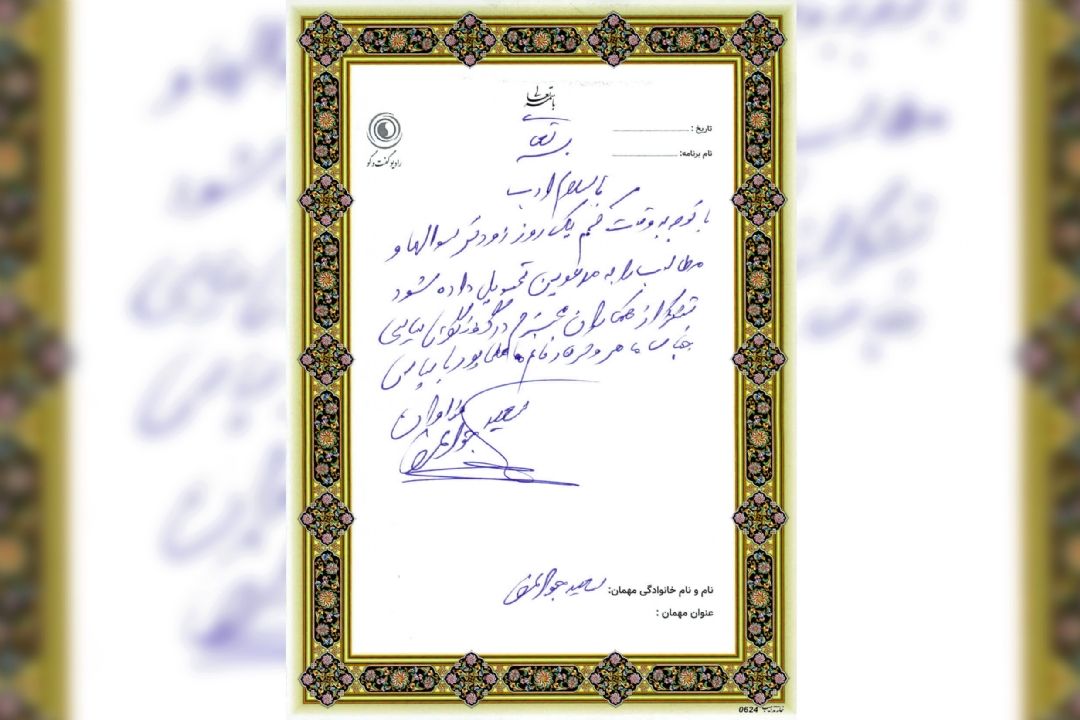 باسمه تعالی
تاریخ :
نام برنامه:
رادیو گفت و گو
بسمه تعالی
با سلام و ادب
با توجه به وقت کم یک روز زودتر سوالها و
مطالب را به مدعوین تحویل داده شود
تشکر از همکاران محترم در گفتگوی سیاسی
جناب با سپاس
سعید فراوان
سعید
نام و نام خانوادگی مهمان: سعید
عنوان مهمان :
0624